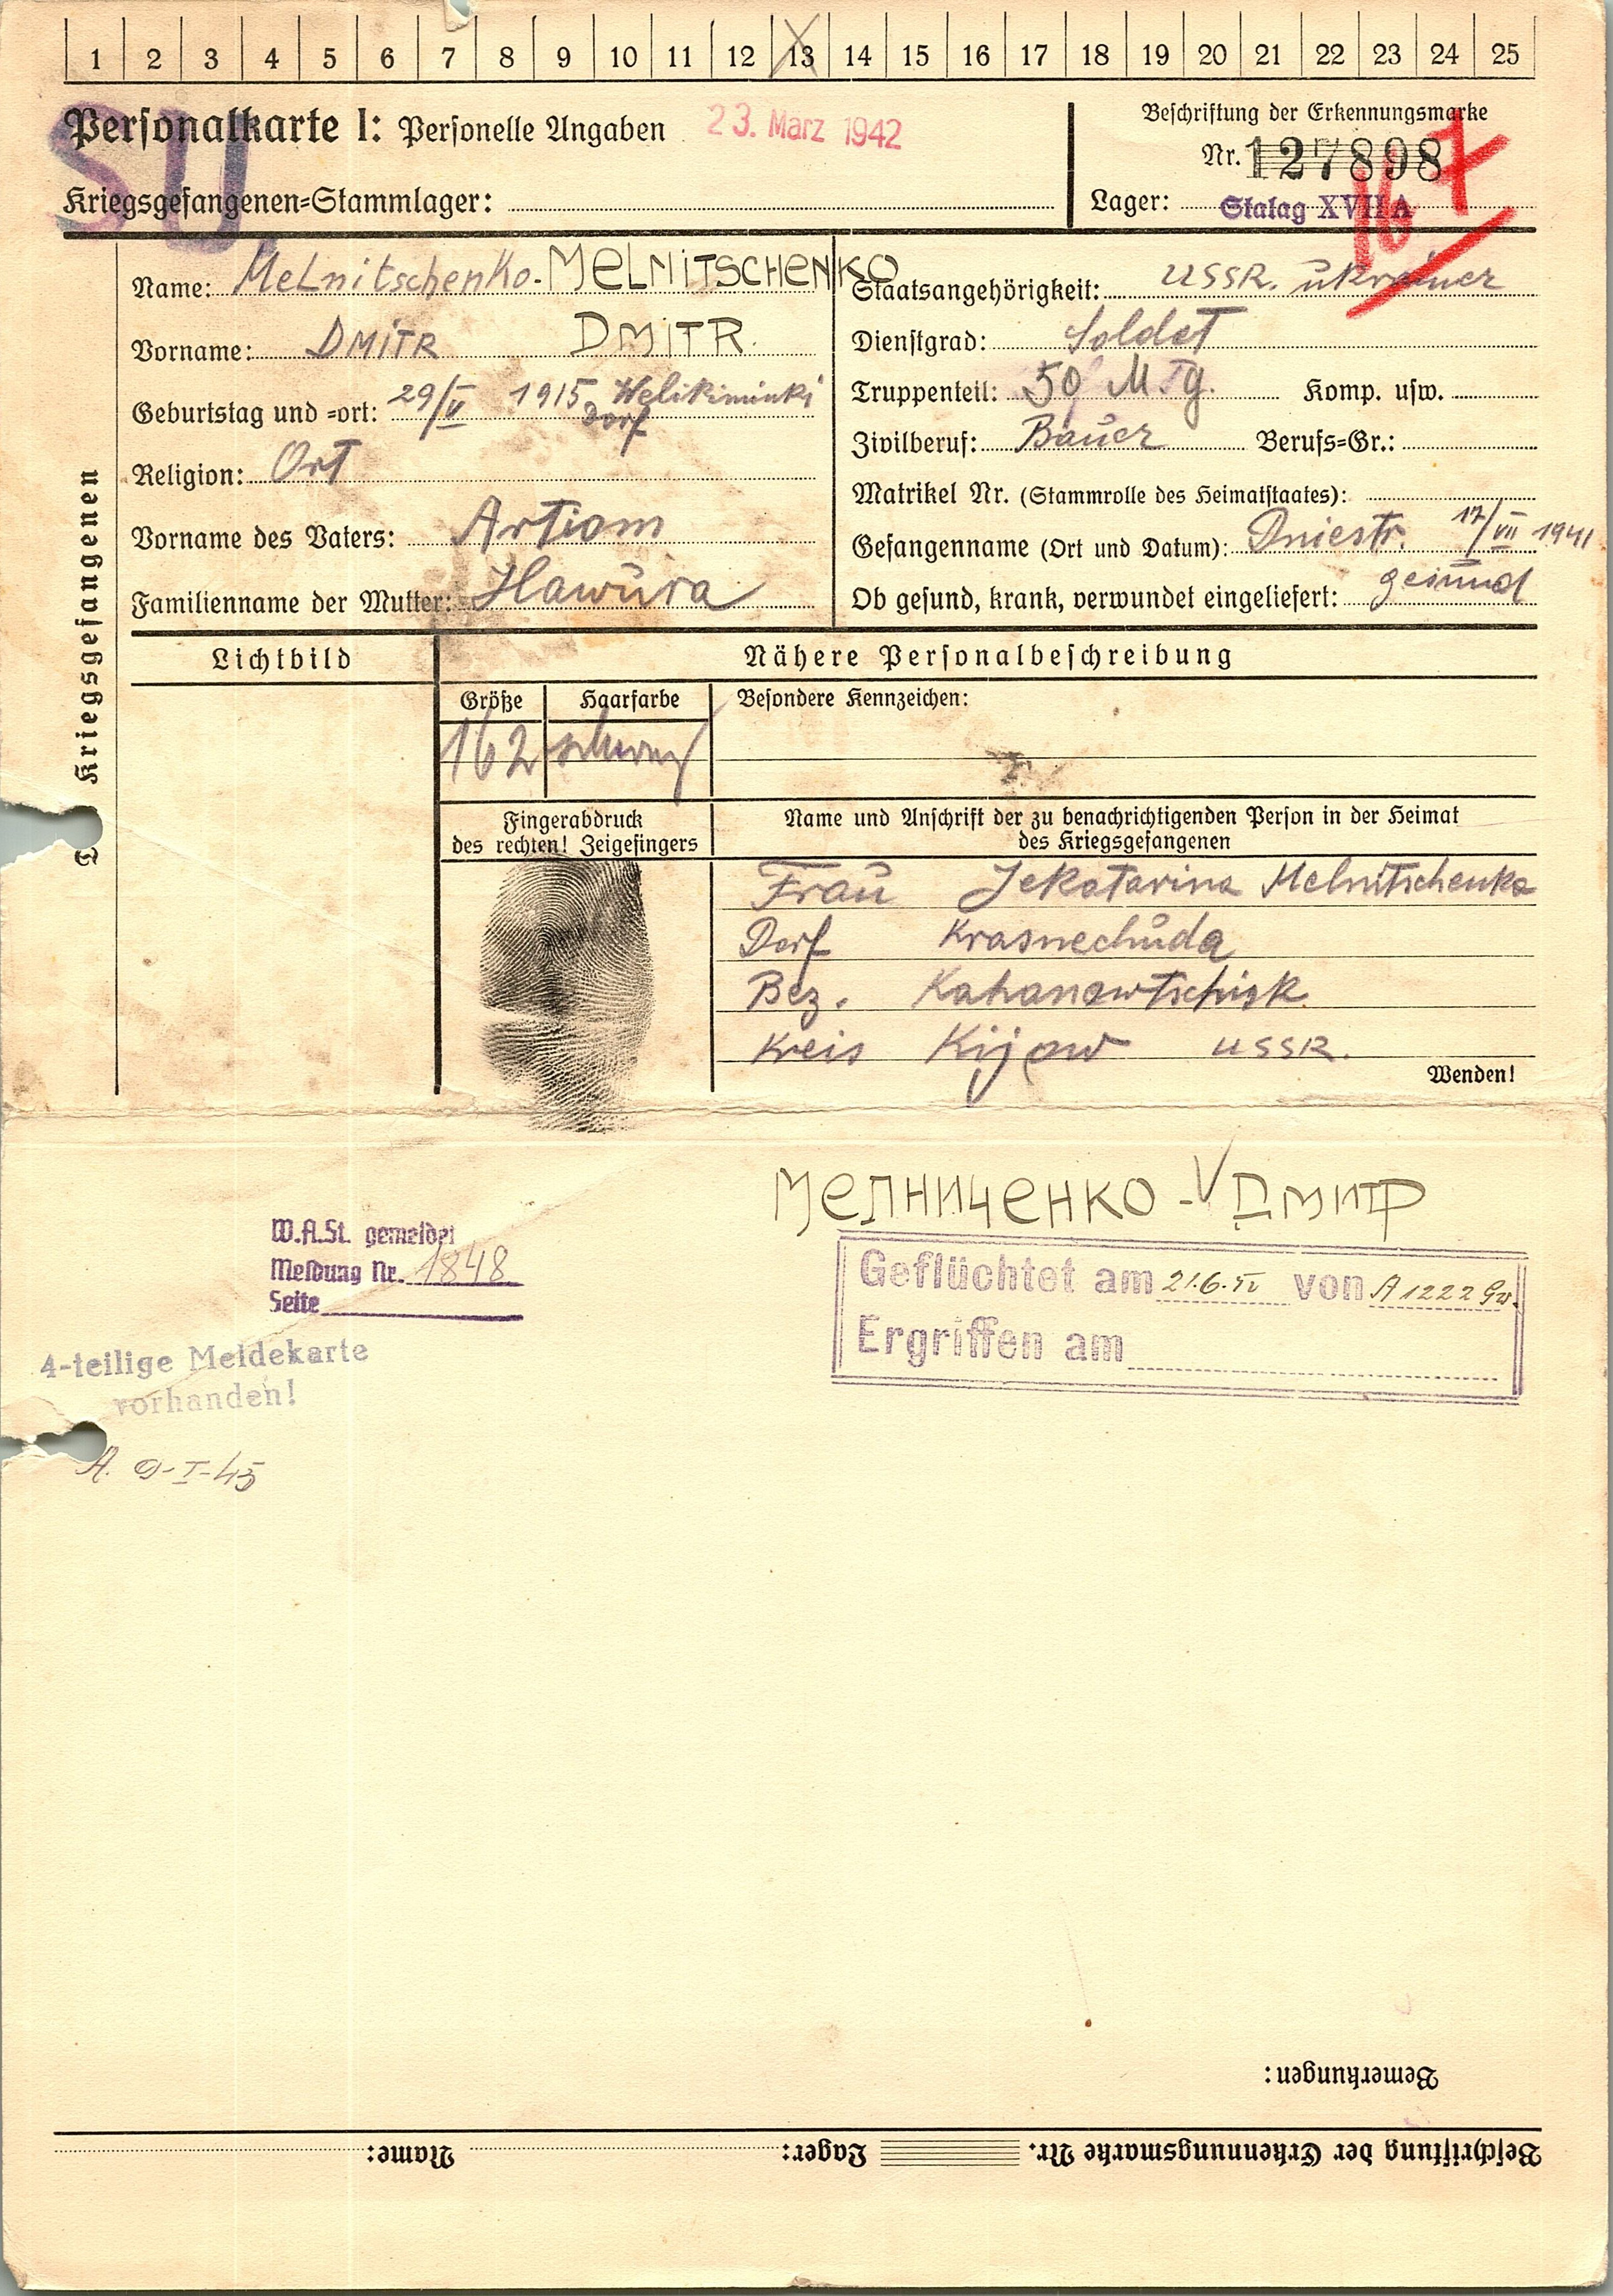 1 2 3 4 5 6 7 8 9 10 11 12 13 14 15 16 17 18 19 20 21 22 23 24 25
Personalkarte I: Personelle Angaben 23. März 1942
SU
Kriegsgefangenen-Stammlager:
Beschriftung der Erkennungsmarke
Nr. 127898
Lager: Stalag XVII A
Name: Melnitschenko - MELNITSCHENKO
Vorname: DMITR DMITR.
Geburtstag und -ort: 29/V 1915 Welikiminki
Dorf
Religion: Ort
Vorname des Vaters: Artiom
Familienname der Mutter: Hawura
Staatsangehörigkeit: USSR. Ukrainer
Dienstgrad: Soldat
Truppenteil: 50 Komp. usw.
Zivilberuf: Bauer Berufs-Gr.:
Matrikel Nr. (Stammrolle des Heimatstaates):
Gefangenname (Ort und Datum): Dniestr. 17/VII 1941
Ob gesund, krank, verwundet eingeliefert: gesund
Kriegsgefangenen
Lichtbild
Nähere Personalbeschreibung
Größe Haarfarbe Besondere Kennzeichen:
162 schwarz
Fingerabdruck
des rechten! Zeigefingers
Name und Anschrift der zu benachrichtigenden Person in der Heimat
des Kriegsgefangenen
Frau Jekatarina Melnitschenko
Dorf Krasnechuda
Bez. Kahanowtschisk
Kreis Kijow USSR.
Wenden!
МЕЛНИЧЕНКО - ДМИТР
W.A.St. gemeldet
Meldung Nr. 1848
Seite
4-teilige Meldekarte
vorhanden!
A. 9-I-45
Geflüchtet am 21.6.42 von A 1222 Gw.
Ergriffen am
Bemerkungen:
Beschriftung der Erkennungsmarke Nr. Lager: Name: